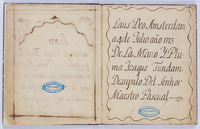 Laus Deo Amsterdam
a 4 de Julio año 1773
De La Mano Y Plu
ma Ieague Tindam
Desipulo Del Senhor
Maestro Pascual